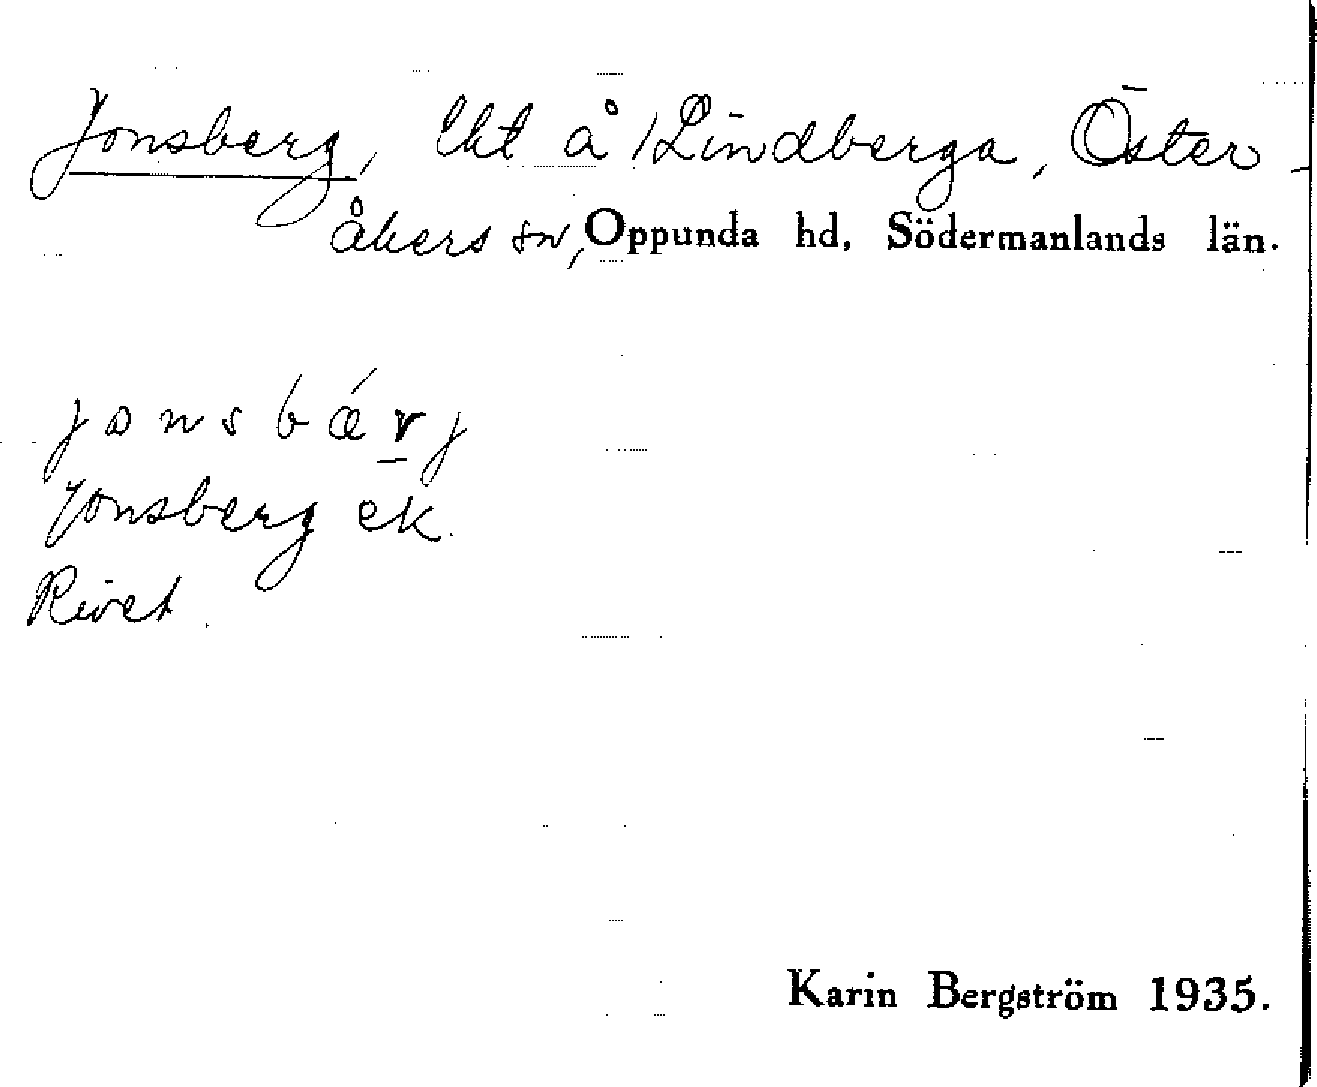 Jonsberg, lht å /Lindberga, Öster-
åkers sn, Oppunda hd, Södermanlands län.
jonsbǽrj
Jonsberg ek.
Rivet.
Karin Bergström 1935.